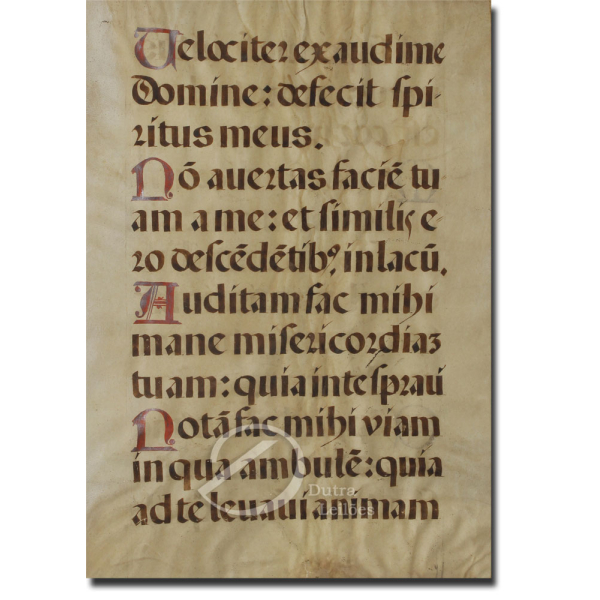 Velociter exaudi me
Domine: defecit spi-
ritus meus.
Nō avertas faciē tu
am a me: et similis e
ro descēdētibꝰ in lacū.
Auditam fac mihi
mane misericordiaꝫ
tuam: quia in te spraui
Notā fac mihi viam
in qua ambulē: quia
ad te leuaui animam
Dutra
Leilões